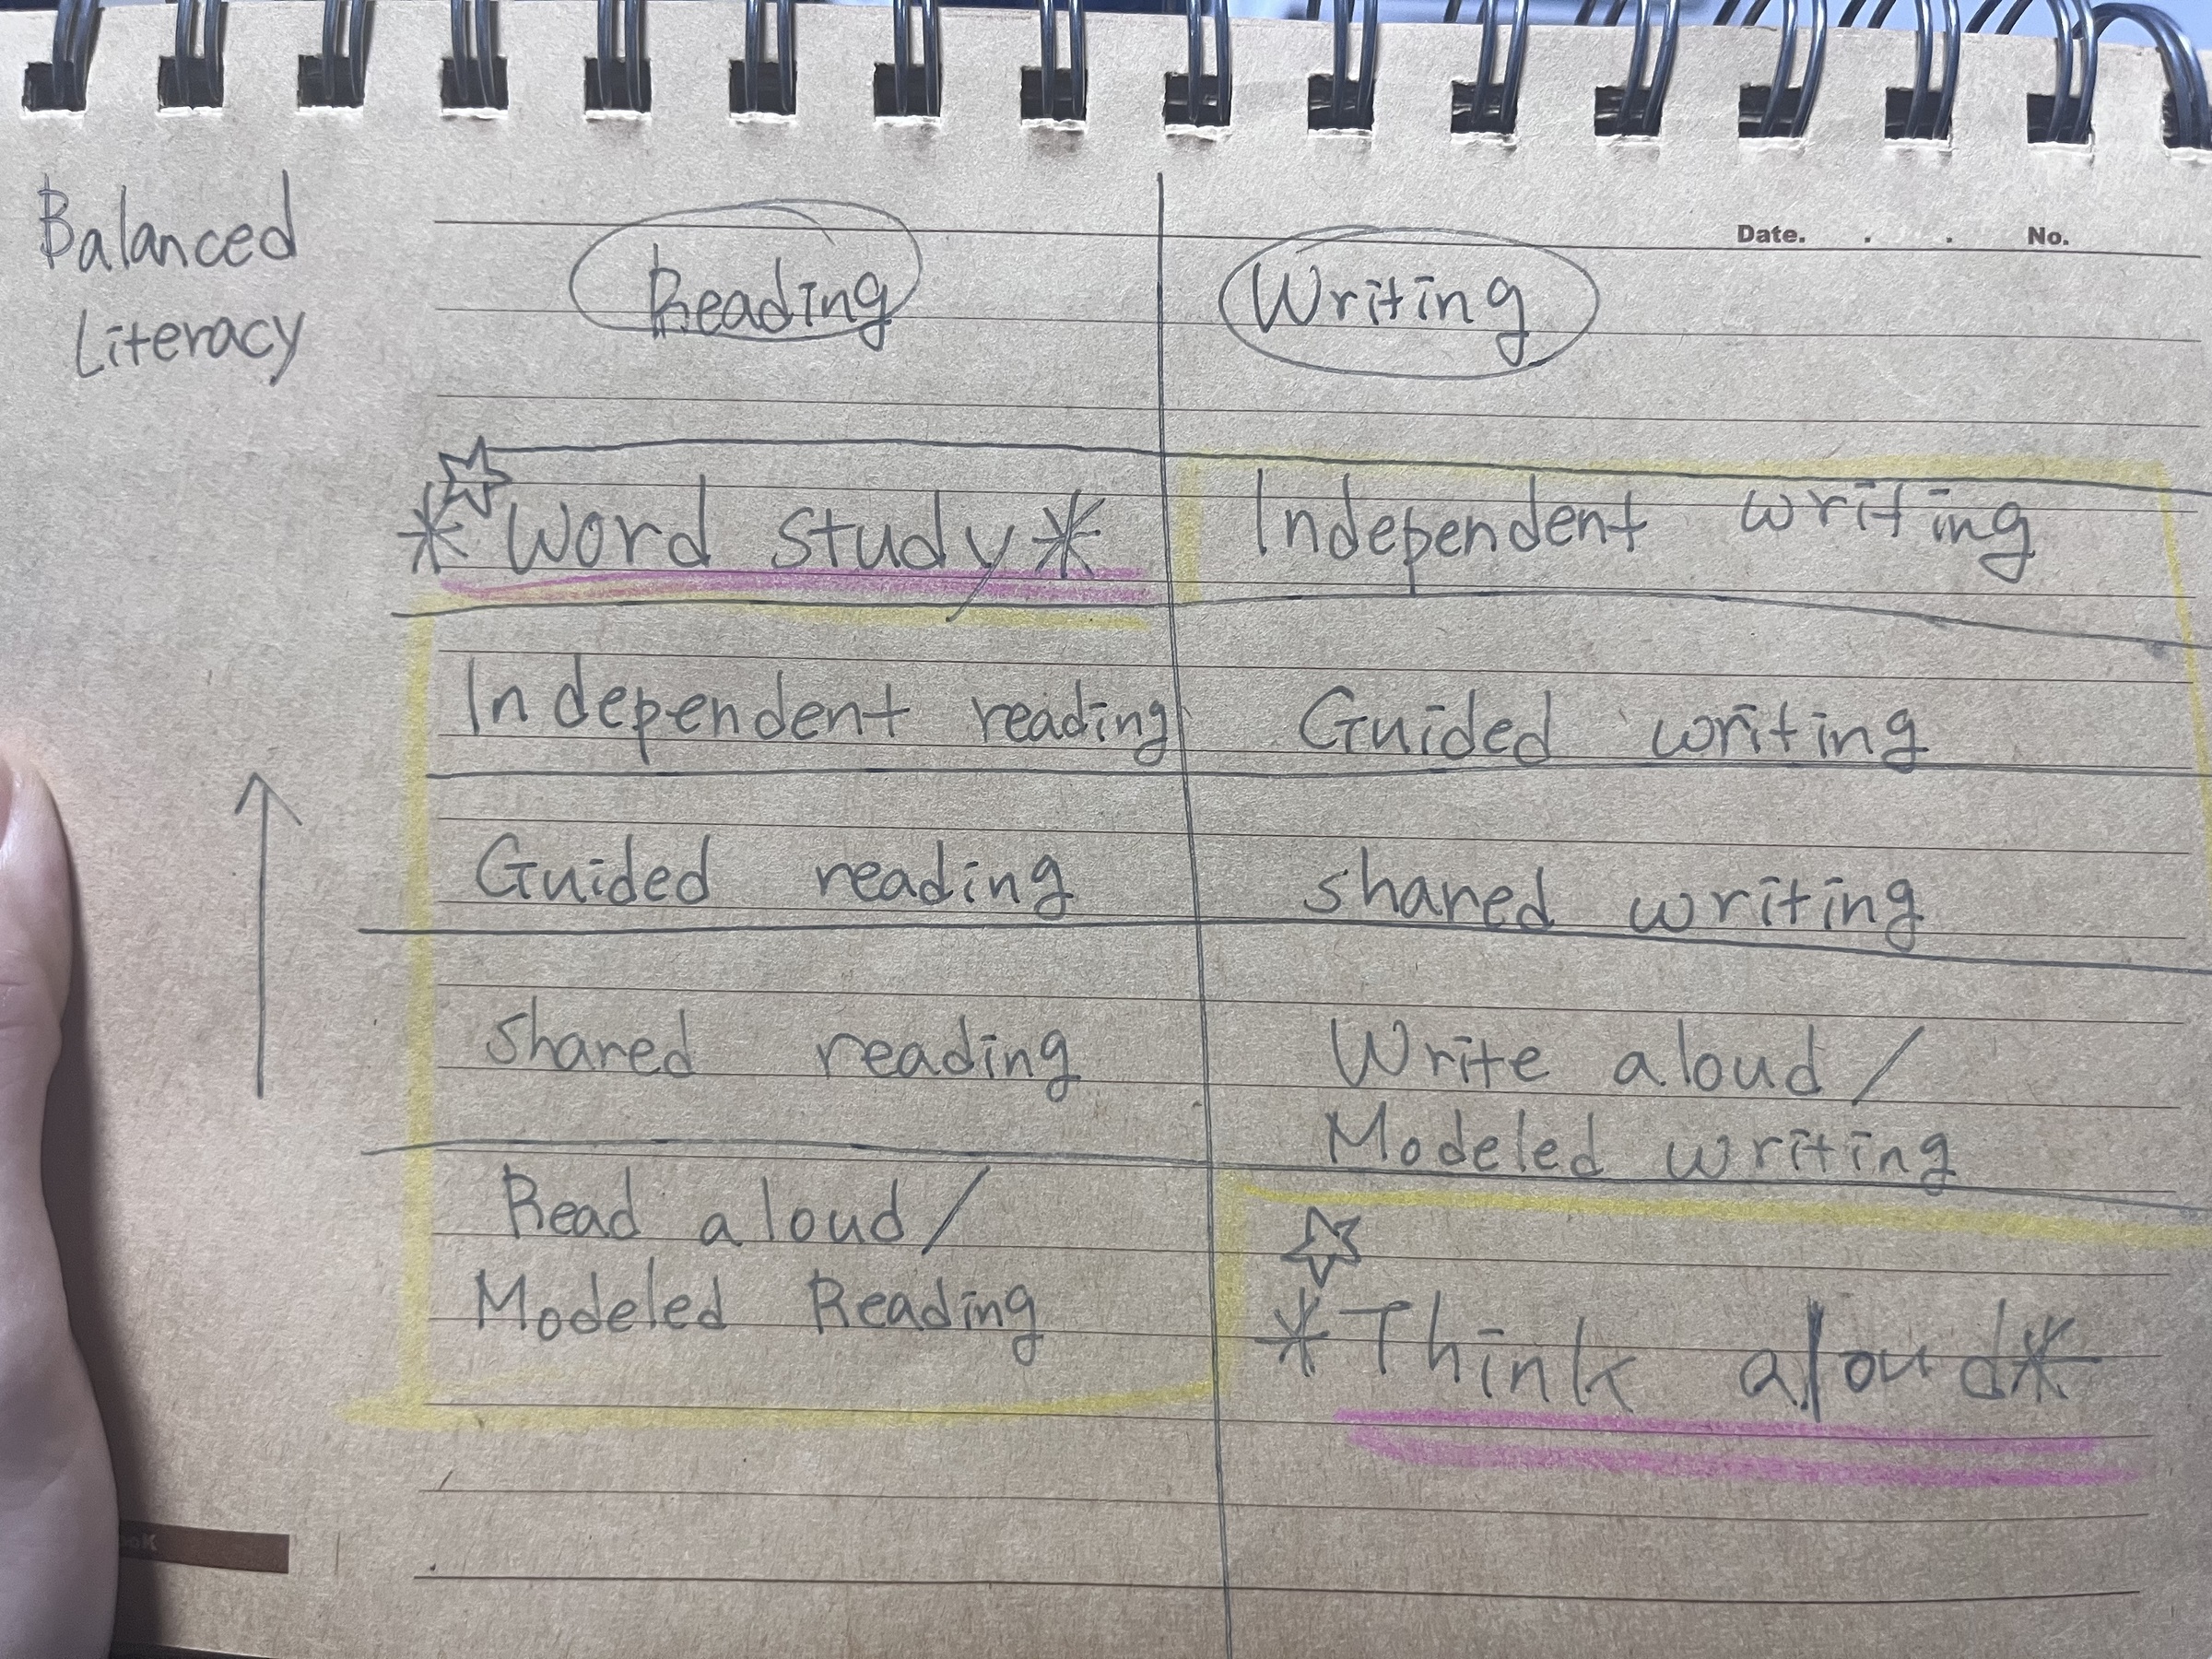 Balanced
Literacy
Date. . . No.
Reading
Writing
*Word study*
Independent writing
Independent reading
Guided writing
Guided reading
shared writing
Shared reading
Write aloud /
Modeled writing
Read aloud /
Modeled Reading
*Think aloud*